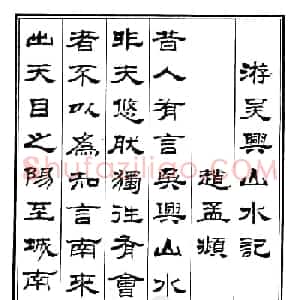 游吳興山水記
趙孟頫
昔人有言吳興山水
非夫悠然獨往有會
者不以爲知言南來
出天目之陽至城南
Shufaziliao.com